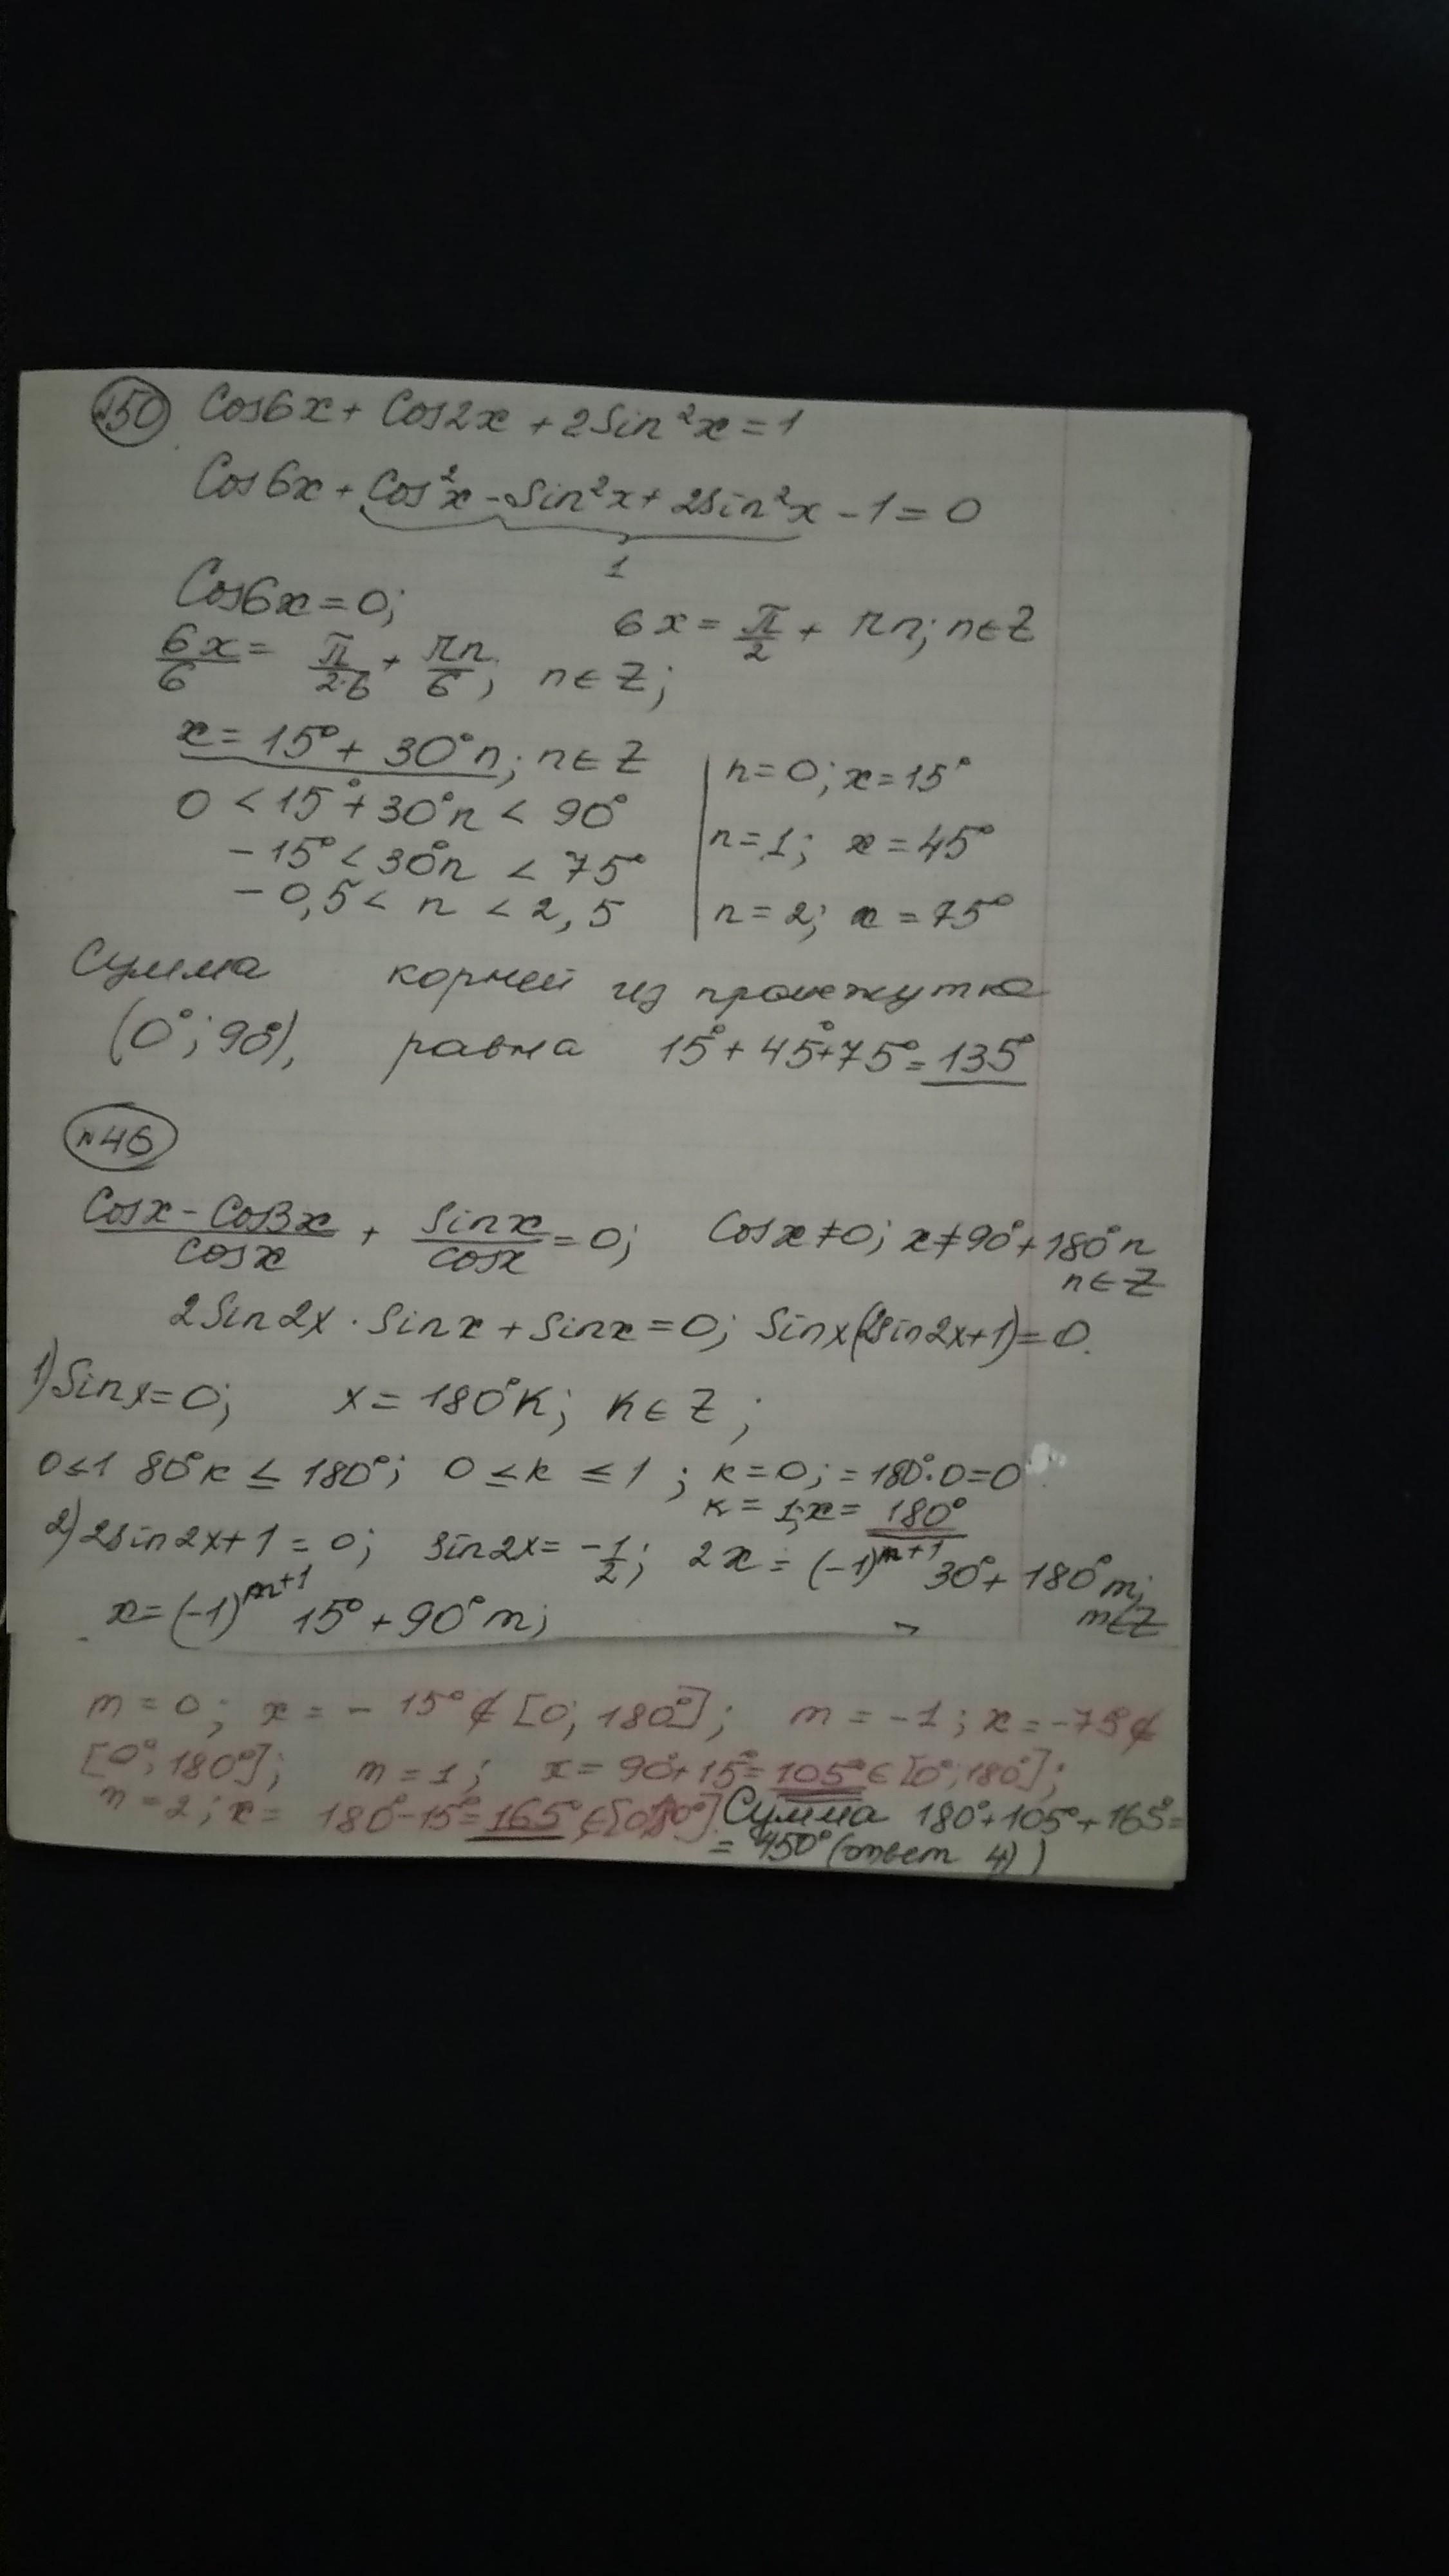 №50 Cos6x + Cos2x + 2Sin²x = 1
Cos6x + Cos²x - Sin²x + 2Sin²x - 1 = 0
1
Cos6x = 0; 6x = π/2 + πn; n∈Z
6x/6 = π/2·6 + πn/6; n∈Z;
x = 15° + 30°n; n∈Z
n=0; x=15°
0 < 15° + 30°n < 90°
n=1; x=45°
-15° < 30°n < 75°
-0,5 < n < 2,5
n=2; x=75°
Сумма корней из промежутка
(0°; 90°), равна 15°+45°+75°=135°
№46
Cosx - Cos3x/cosx + Sinx/cosx = 0; Cosx≠0; x≠90°+180°n
n∈Z
2Sin2x · Sinx + Sinx = 0; Sinx(2sin2x+1)=0.
1) Sinx=0; x = 180°K; K∈Z;
0≤180°к ≤ 180°; 0 ≤ к ≤ 1; к=0; =180°·0=0
к = 1; x = 180°
2) 2sin2x+1 = 0; sin2x = -1/2; 2x = (-1)^m+1 30° + 180°m;
m∈Z
x = (-1)^m+1 15° + 90°m;
m = 0; x = - 15° ∉ [0; 180°]; m = -1; x = -75°∉
[0°; 180°]; m = 1; x = 90°+15°=105°∈[0°;180°];
m = 2; x = 180°-15°=165° ∈[0;180°]. Сумма 180°+105°+165°=
= 450° (ответ 4))